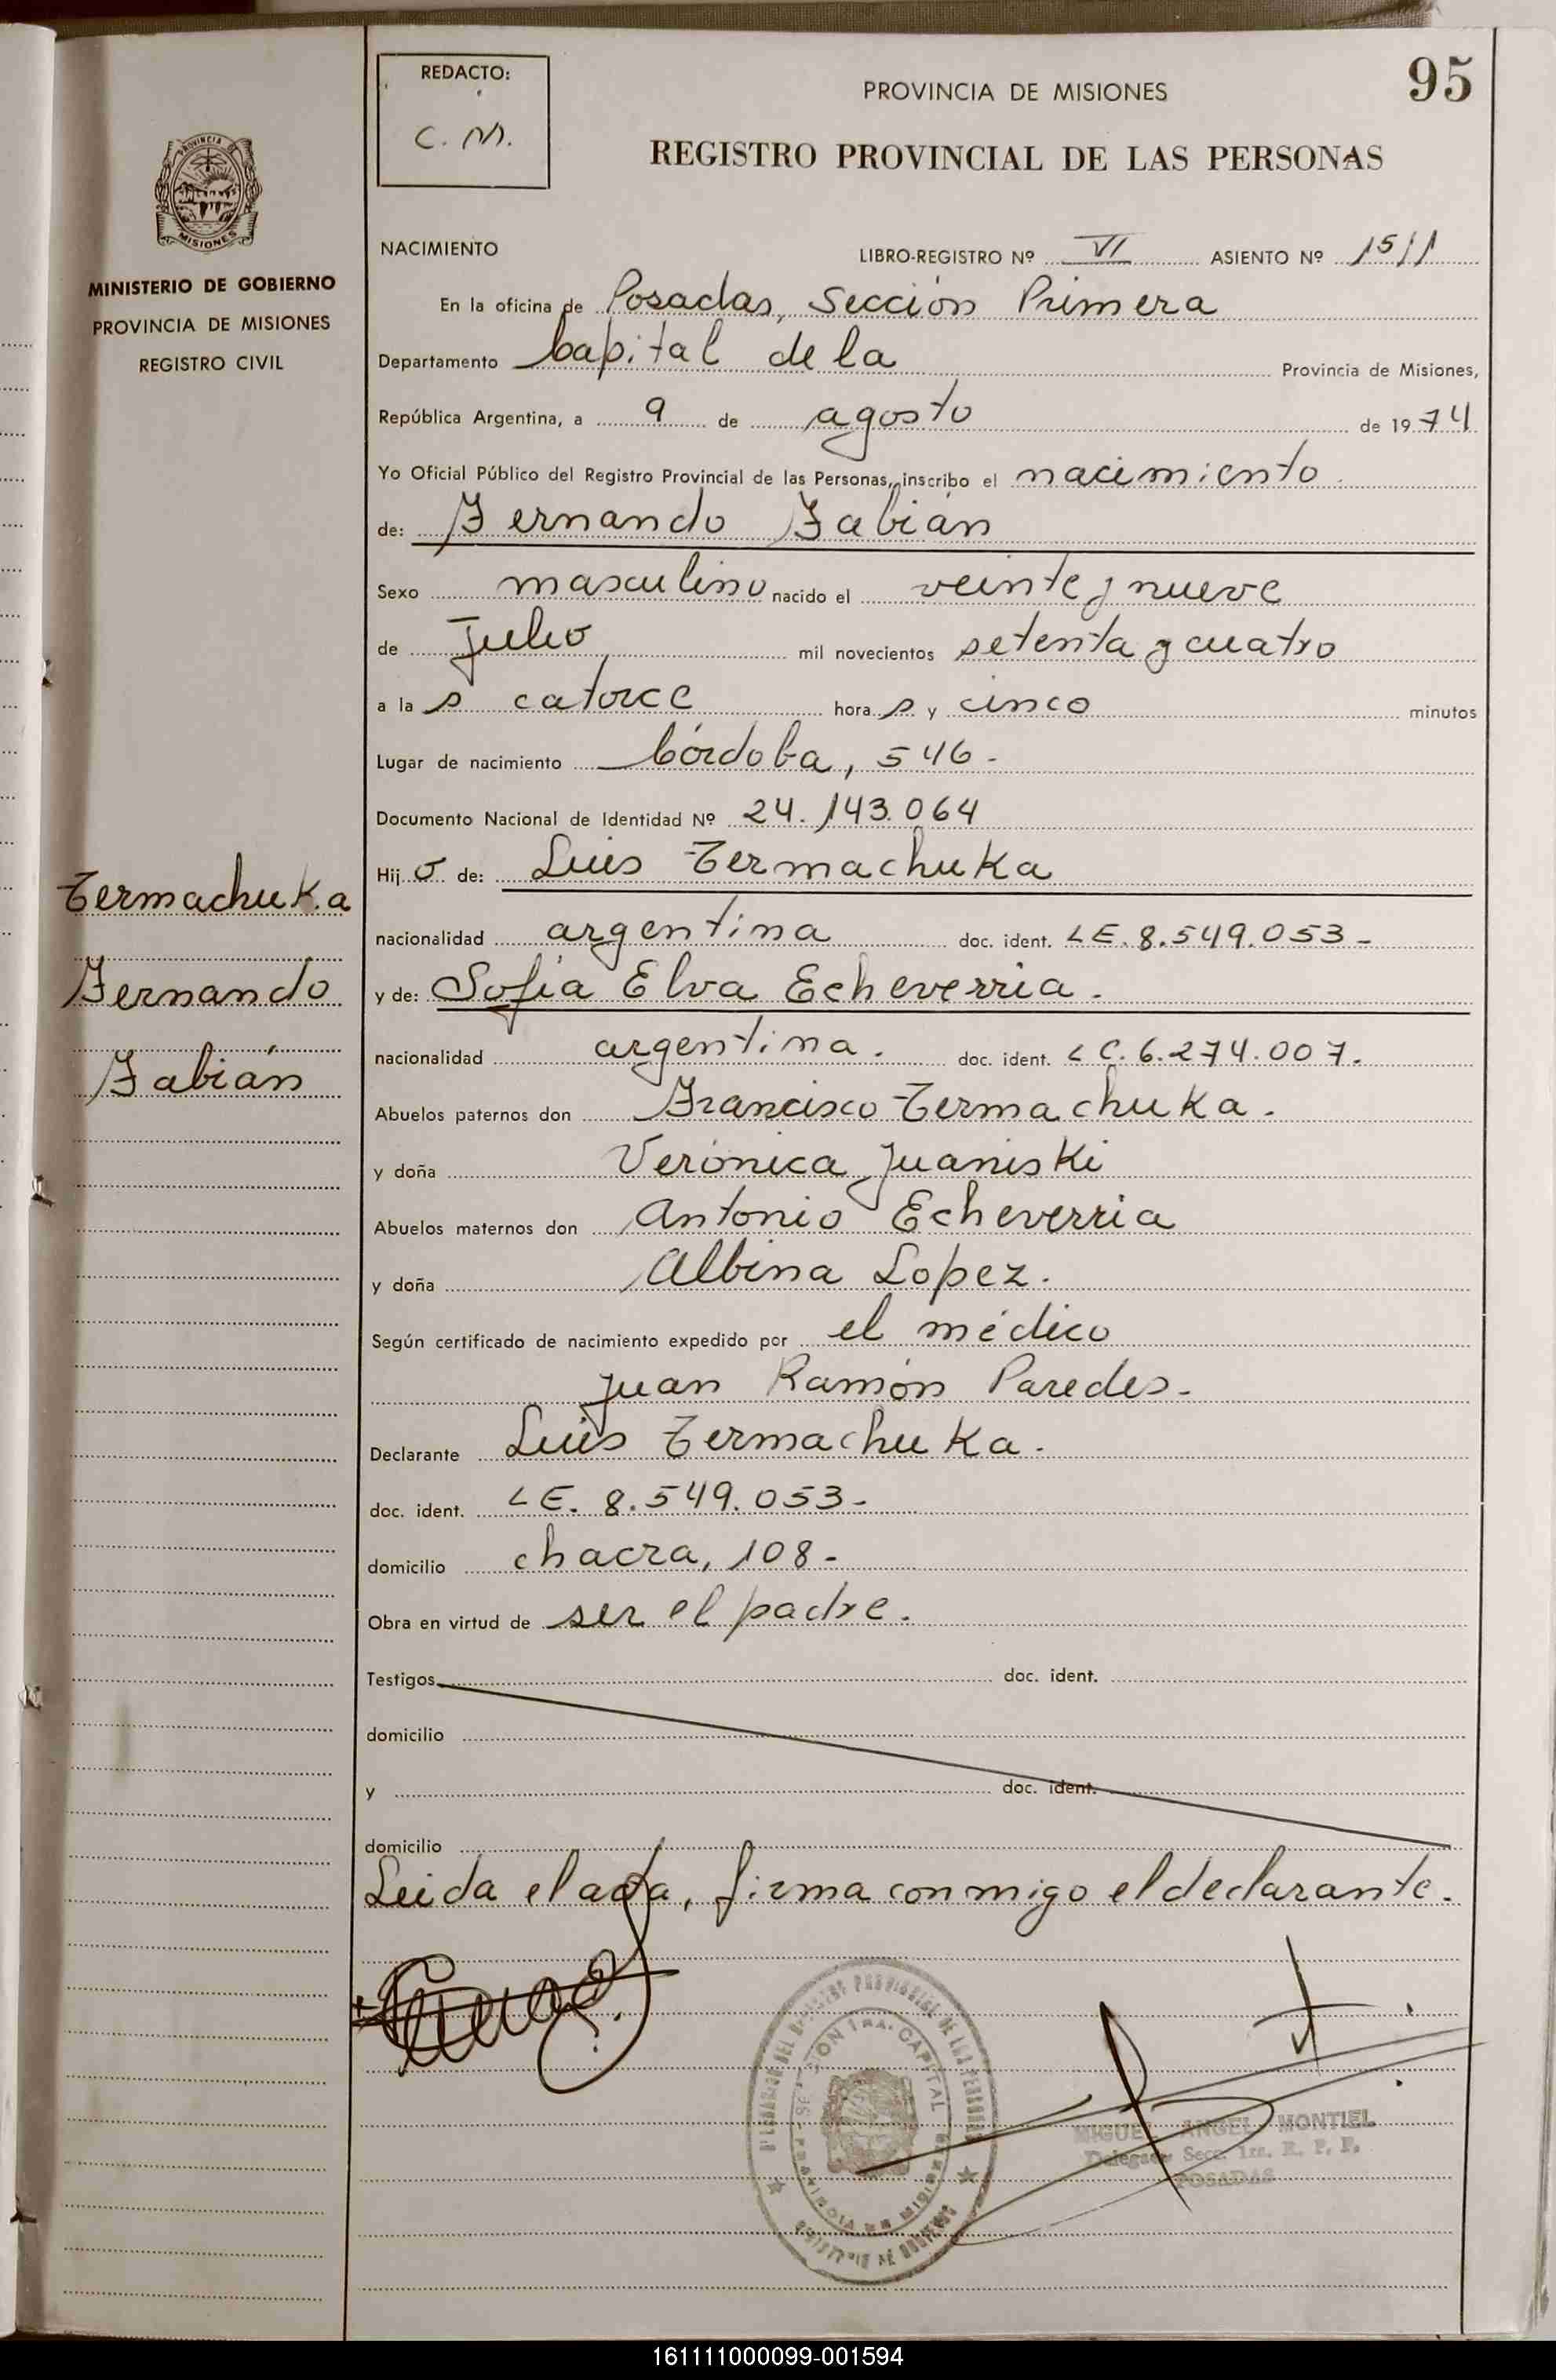 REDACTO:
C. M.
PROVINCIA DE MISIONES
95
REGISTRO PROVINCIAL DE LAS PERSONAS
MISIONES
MINISTERIO DE GOBIERNO
PROVINCIA DE MISIONES
REGISTRO CIVIL
NACIMIENTO
LIBRO-REGISTRO Nº VI ASIENTO Nº 1511
En la oficina de Posadas, Sección Primera
Departamento Capital de la Provincia de Misiones,
República Argentina, a 9 de agosto de 1974
Yo Oficial Público del Registro Provincial de las Personas, inscribo el nacimiento
de: Fernando Fabián
Sexo masculino nacido el veinte y nueve
de Julio mil novecientos setenta y cuatro
a la s catorce hora s y cinco minutos
Lugar de nacimiento Córdoba, 546 -
Documento Nacional de Identidad Nº 24.143.064
Hij o de: Luis Termachuka
nacionalidad argentina doc. ident. LE. 8.549.053 -
y de: Sofía Elva Echeverria.
nacionalidad argentina. doc. ident. LC. 6.274.007.
Abuelos paternos don Francisco Termachuka.
y doña Verónica Juaniski
Abuelos maternos don Antonio Echeverria
y doña Albina Lopez.
Según certificado de nacimiento expedido por el médico
Juan Ramón Paredes -
Declarante Luis Termachuka.
doc. ident. LE. 8.549.053 -
domicilio chacra, 108 -
Obra en virtud de ser el padre.
Testigos doc. ident.
domicilio
y doc. ident.
domicilio
Leida el acta, firma conmigo el declarante.
Termachuka
Fernando
Fabián
MIGUEL ANGEL MONTIEL
Delegado Secc. 1ra. R. P. P.
POSADAS
161111000099-001594